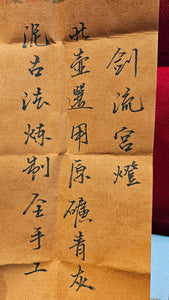 剑流宫燈
此壶選用原礦青灰
泥古法炼制全手工